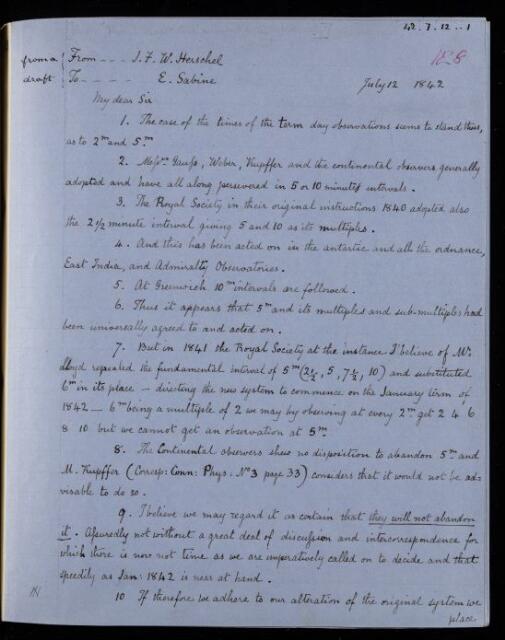 42.7.12..1
from a draft
From --- J. F. W. Herschel
To - - - - E. Sabine
July 12 1842
My dear Sir
1. The case of the times of the term day observations seems to stand thus,
as to 2m and 5.m
2. Messrs Gauss, Weber, Kupffer and the continental observers generally
adopted and have all along persevered in 5 or 10 minutes intervals.
3. The Royal Society in their original instructions 1840 adopted also
the 2 1/2 minute interval giving 5 and 10 as its multiples.
4. And this has been acted on in the antartic and all the ordnance,
East India, and Admiralty Observatories.
5. At Greenwich 10m intervals are followed.
6. Thus it appears that 5m and its multiples and sub-multiples had
been universally agreed to and acted on.
7. But in 1841 the Royal Society at the instance I believe of Mr.
Lloyd repealed the fundamental interval of 5m (2½, 5, 7½, 10) and substituted
6m in its place — directing the new system to commence on the January term of
1842 — 6m being a multiple of 2 we may by observing at every 2m get 2 4 6
8 10 but we cannot get an observation at 5m.
8. The Continental observers shew no disposition to abandon 5m and
M. Kupffer (Corresp: Conn: Phys. No 3 page 33) considers that it would not be ad-
visable to do so.
9. I believe we may regard it as certain that they will not abandon
it. Assuredly not without a great deal of discussion and intercorrespondence for
which there is now not time as we are imperatively called on to decide and that
speedily as Jan: 1842 is near at hand.
10 If therefore we adhere to our alteration of the original system we
place